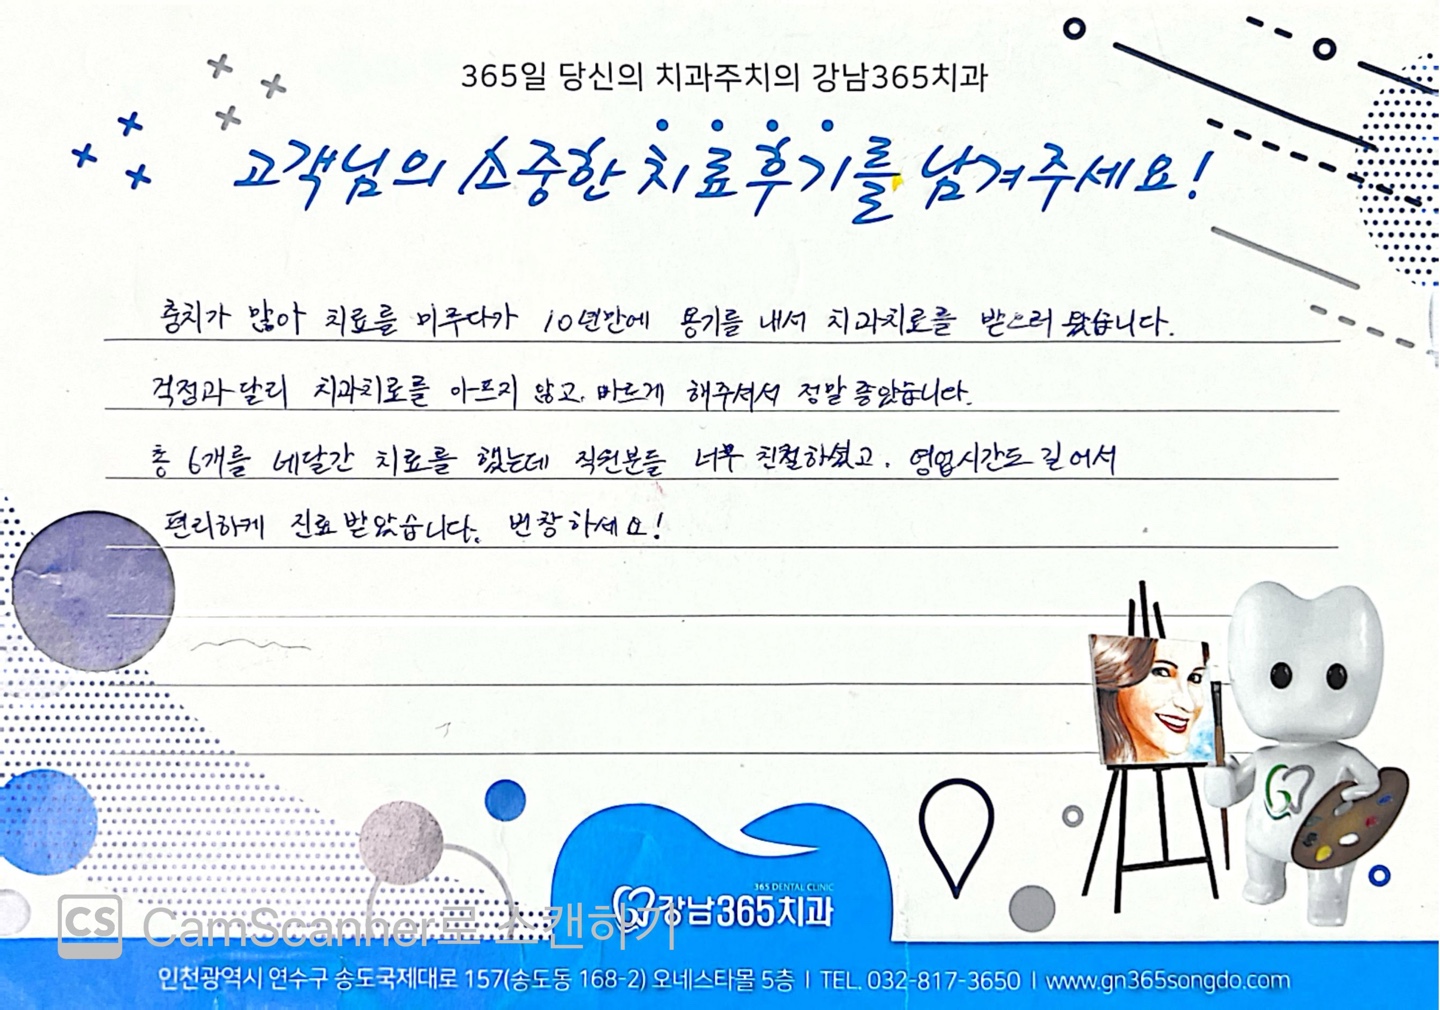 365일 당신의 치과주치의 강남365치과
고객님의 소중한 치료후기를 남겨주세요!
충치가 많아 치료를 미루다가 10년만에 용기를 내서 치과치료를 받으러 왔습니다.
걱정과 달리 치과치료를 아프지 않고, 바르게 해주셔서 정말 좋았습니다.
총 6개를 네달간 치료를 했는데 직원분들 너무 친절하셨고, 영업시간도 길어서
편리하게 진료 받았습니다. 번창하세요!
365 DENTAL CLINIC
강남365치과
CS CamScanner로 스캔하기
인천광역시 연수구 송도국제대로 157(송도동 168-2) 오네스타몰 5층 | TEL. 032-817-3650 | www.gn365songdo.com